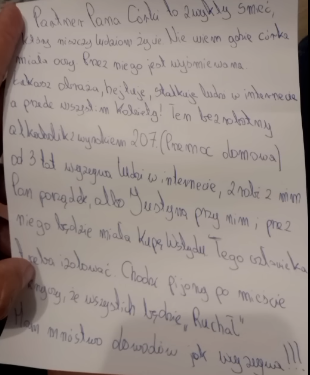 Partner Pana Córki to zwykły śmieć,
który niszczy ludziom życie. Nie wiem gdzie córka
miała oczy. Przez niego jest wyśmiewana
Łukasz obraża, hejtuje, stalkuje ludzi w internecie
a przede wszystkim Kobiety! Ten bezrobotny
alkoholik z wyrokiem 207 (Przemoc domowa)
od 3 lat wyzywa ludzi w internecie, zrobi z nim
Pan porządek, albo Justyna przy nim i przez
niego będzie miała kupę wstydu. Tego
trzeba izolować. Chodzi pijany po mieście
że wszystkich będzie „Ruchał"
Mam mnóstwo dowodów jak wyzywa!!!